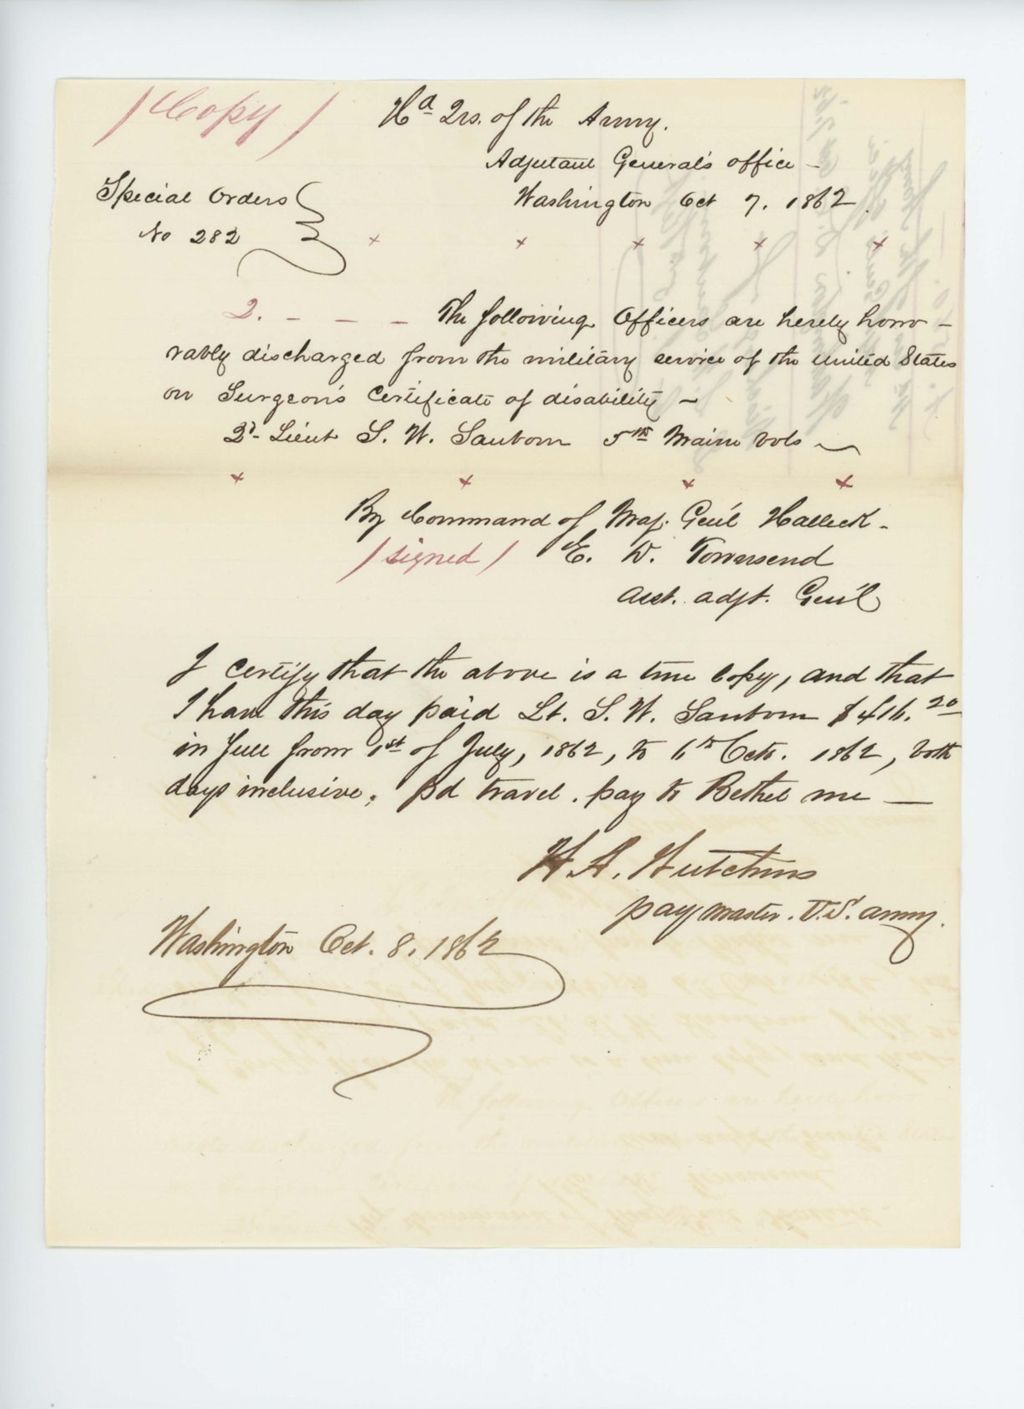 /Copy/
Hd Qrs. of the Army.
Adjutant General's office -
Special Orders
Washington Oct 7. 1862.
No 282
x x x x x
2. - - - The following Officers are hereby hono-
rably discharged from the military service of the United States
on Surgeon's Certificate of disability -
2d Lieut S. W. Sanborn 5th Maine Vols -
x x x x
By Command of Maj. Gen'l Halleck -
/signed/ E. D. Townsend
Asst. adjt. Gen'l
I certify that the above is a true Copy, and that
I have this day paid Lt. S. W. Sanborn $416.20
in full from 1st of July, 1862, to 6th Octo. 1862, both
days inclusive. pd travel. pay to Bethel me -
H. A. Hutchins
paymaster. U.S. army.
Washington Oct. 8. 1862